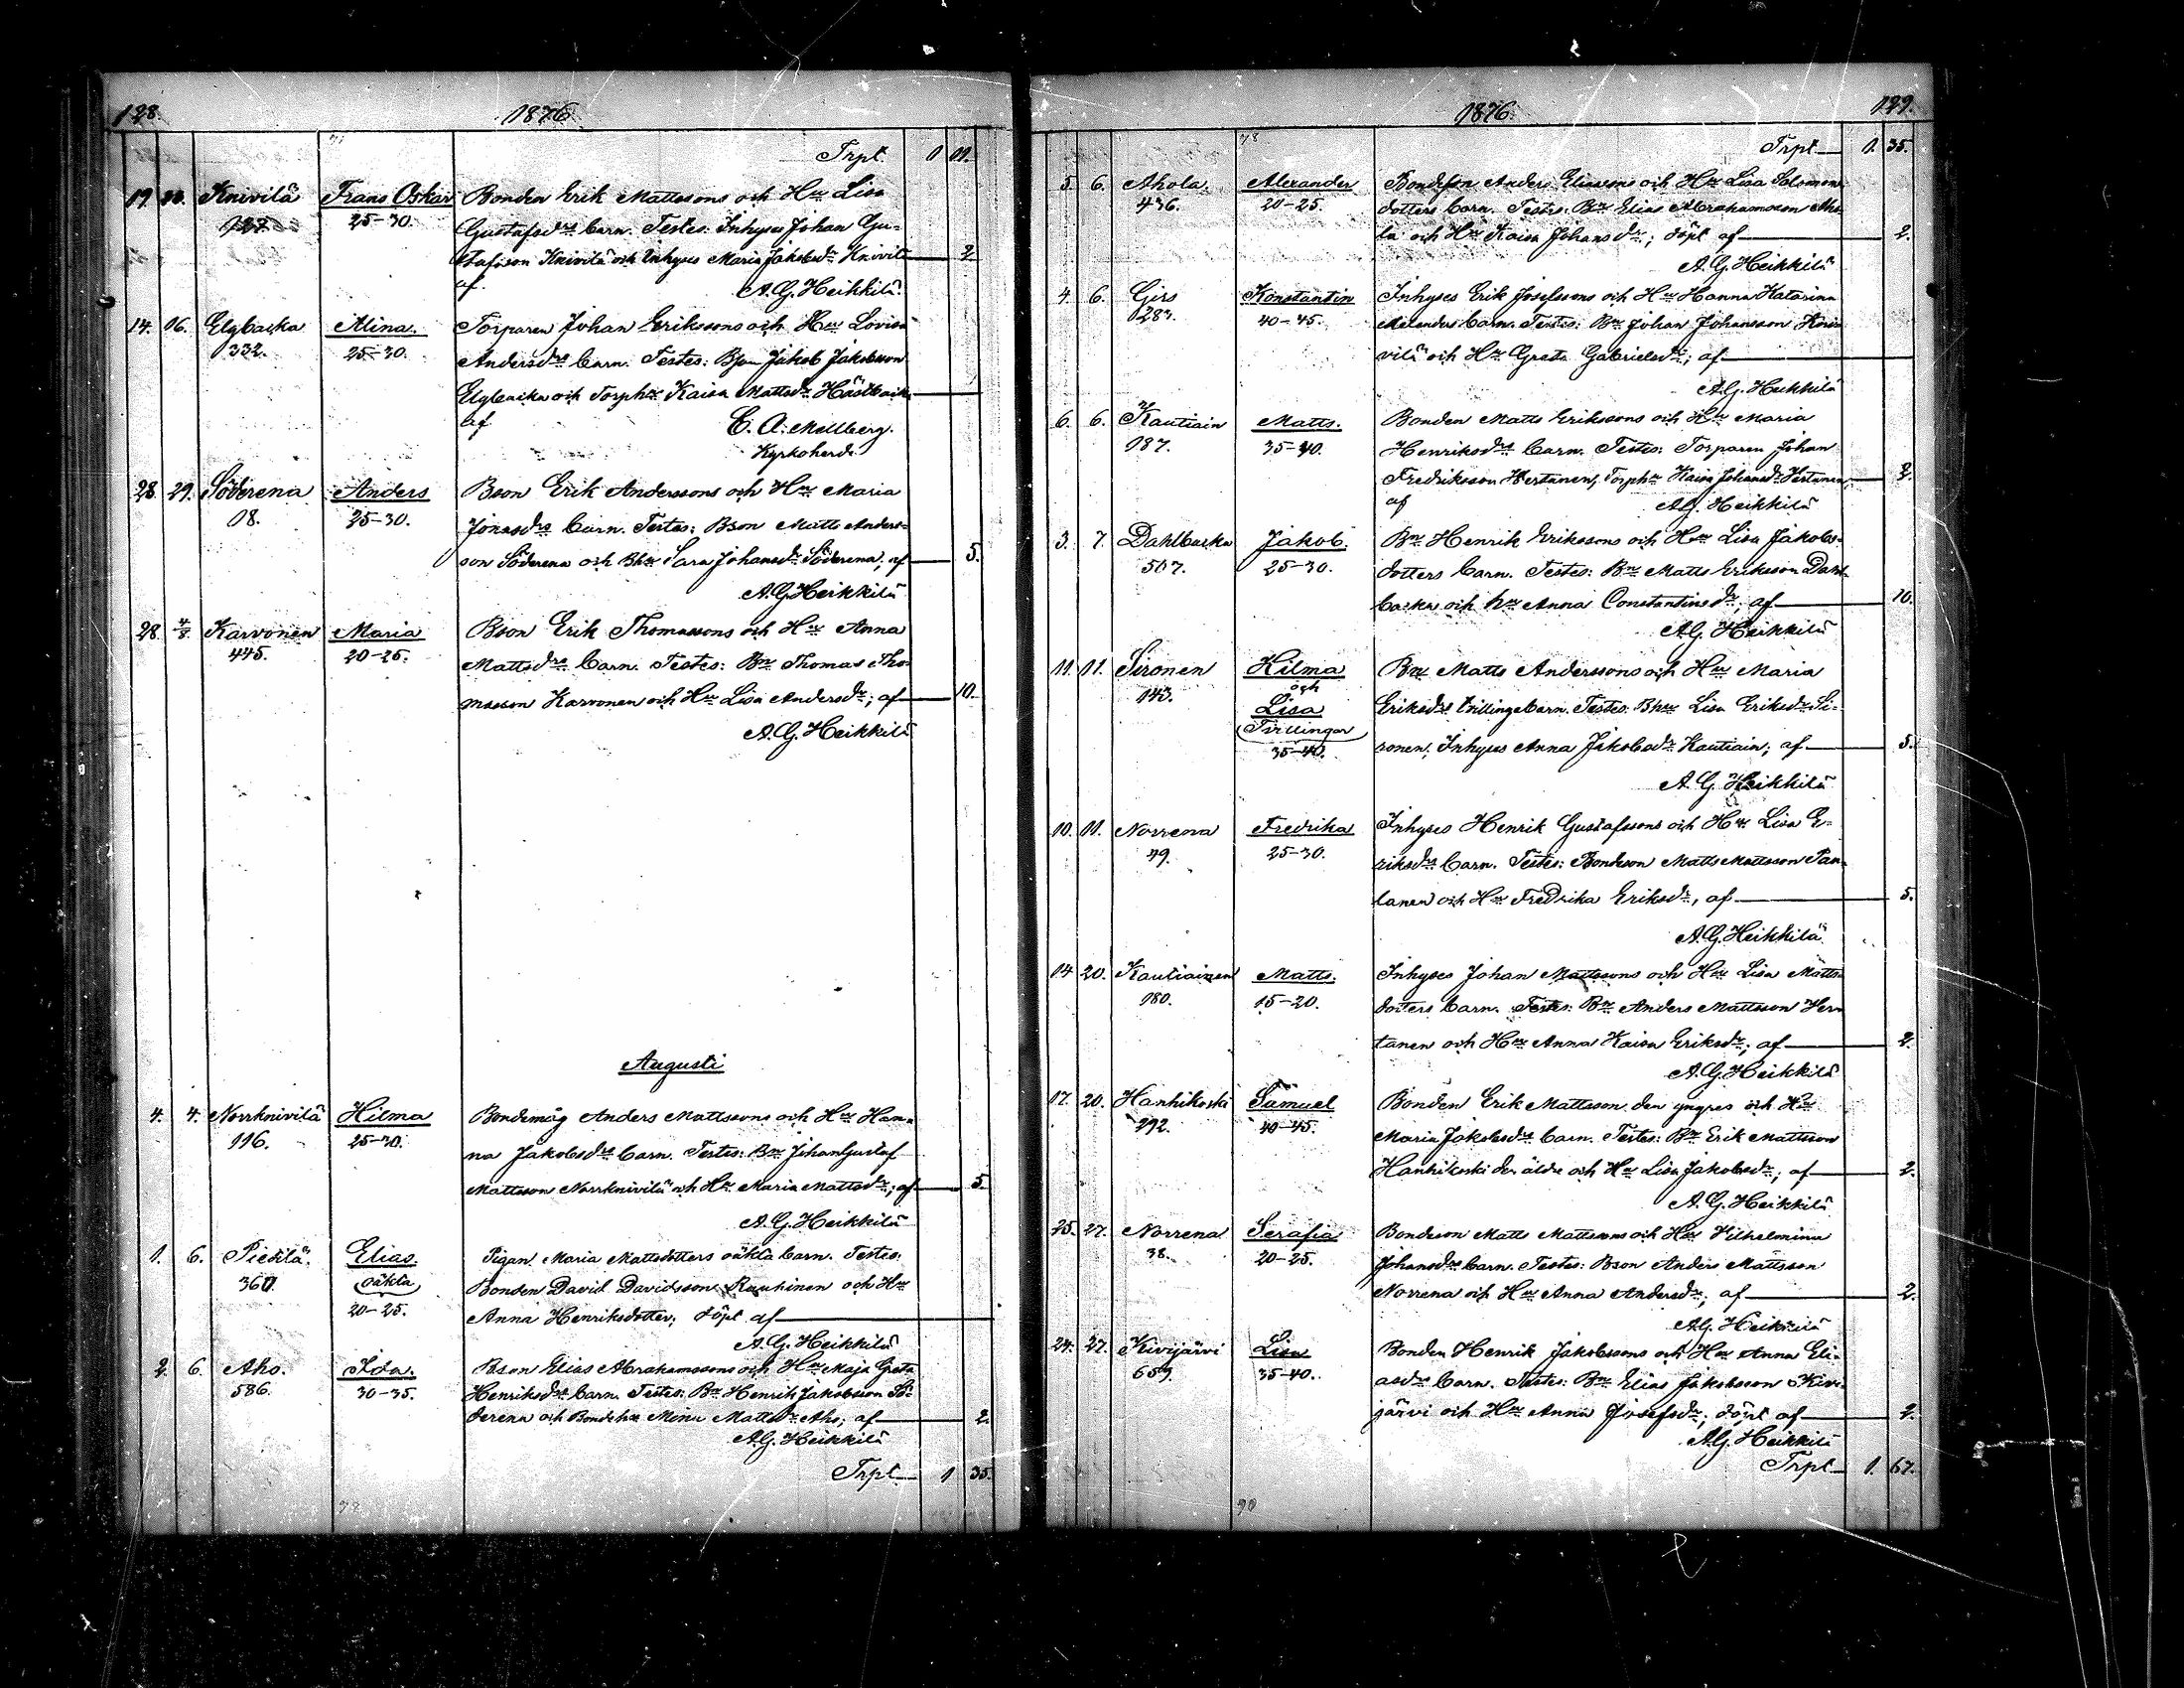 128.
1876.
Trpt. 1 01.
19. 20. Knivilä Frans Oskar Bonden Erik Mattssons och Hu Lisa
25-30. Gustafsdrs barn. Testes: Inhyses Johan Gu-
stafsson Knivilä och Inhyses Maria Jakobsdr Knivilä 2
af A. G. Heikkilä.
14. 16. Elgbacka Alina. Torparen Johan Erikssons och Hu Lovisa
332. 25-30. Andersdrs barn. Testes: Bson Jakob Jakobsson
Elgbacka och Torphu Kaisa Mattsdr Hästbacka
af C. A. Mellberg.
Kyrkoherde
28. 29. Söderena Anders Bson Erik Anderssons och Hu Maria
18. 25-30. Jonasdrs barn. Testes: Bson Matts Anders-
son Söderena och Bhu Sara Johansdr Söderena, af 5.
A. G. Heikkilä
28. 4/8. Karvonen Maria Bson Erik Thomassons och Hu Anna
445. 20-25. Mattsdrs barn. Testes: Bn Thomas Tho-
masson Karvonen och Hu Lisa Andersdr; af 10.
A. G. Heikkilä
Augusti
4. 4. Norrknivilä Hilma Bondemåg Anders Mattssons och Hu Han-
116. 25-30. na Jakobsdrs barn. Testes: Bn Johan Gustaf
Mattsson Norrknivilä och Hu Maria Mattsdr; af 5.
A. G. Heikkilä
1. 6. Pietilä. Elias. Pigan Maria Mattsdotters oäkta barn. Testes:
360. oäkta Bonden David Davidsson Rauhinen och Hu
20-25. Anna Henriksdotter; döpt af
A. G. Heikkilä
2. 6. Aho. Ida. Bson Elias Abrahamssons och Hu Maja Greta
586. 30-35. Henriksdrs barn. Testes: Bn Henrik Jakobsson Sö-
derena och Bondehu Mina Mattsdr Aho; af 2.
A. G. Heikkilä
Trpt 1 35.
129.
1876.
Trpt 1. 35.
5. 6. Ahola. Alexander Bondeson Anders Eliassons och Hu Lisa Salomons-
436. 20-25. dotters barn. Testes: Bn Elias Abrahamsson Aho-
la och Hu Kaisa Johansdr; döpt af 2.
A. G. Heikkilä
4. 6. Girs Konstantin Inhyses Erik Josefssons och Hu Hanna Katarina
287. 40-45. barn. Testes: Bn Johan Johansson Kni-
vilä och Hu Greta Gabrielsdr; af
A. G. Heikkilä
6. 6. Kautiain Matts. Bonden Matts Erikssons och Hu Maria
187. 35-40. Henriksdrs barn. Testes: Torparen Johan
Fredriksson Hertanen, Torphu Kaisa Johansdr Hertanen; 2.
af A. G. Heikkilä
3. 7. Dahlbacka Jakob. Bn Henrik Erikssons och Hu Lisa Jakobs-
507. 25-30. dotters barn. Testes: Bn Matts Eriksson Dahl-
backa och hu Anna Constantinsdr, af 10.
A. G. Heikkilä
11. 11. Sironen Hilma Bn Matts Anderssons och Hu Maria
143. och
Lisa Eriksdrs tvillingebarn. Testes: Bhu Lisa Eriksdr Si-
Tvillingar
35-40. ronen, Inhyses Anna Jakobsdr Kautiain; af 5.
A. G. Heikkilä
10. 11. Norrena Fredrika Inhyses Henrik Gustafssons och Hu Lisa E-
49. 25-30. riksdrs barn. Testes: Bondeson Matts Mattsson Pan-
tanen och Hu Fredrika Eriksdr, af 5.
A. G. Heikkilä
14 20. Kautiainen Matts. Inhyses Johan Mattssons och Hu Lisa Matts-
180. 15-20. dotters barn. Testes: Bn Anders Mattsson Her-
tanen och Hu Anna Kaisa Eriksdr; af 2.
A. G. Heikkilä
17. 20. Hanhikoski Samuel Bonden Erik Mattsson den yngres och Hu
292. 40-45. Maria Jakobsdrs barn. Testes: Bn Erik Mattsson
Hanhikoski den äldre och Hu Lisa Jakobsdr; af 2.
A. G. Heikkilä
25. 27. Norrena Serafia Bondeson Matts Mattssons och Hu Vilhelmina
38. 20-25. Johansdrs barn. Testes: Bson Anders Mattsson
Norrena och Hu Anna Andersdr, af 2.
A. G. Heikkilä
24. 27. Kivijärvi Lisa Bonden Henrik Jakobssons och Hu Anna Eli-
659. 35-40. asdrs barn. Testes: Bn Elias Jakobsson Kivi-
järvi och Hu Anna Josefsdr; döpt af 2.
A. G. Heikkilä
Trpt 1. 67.